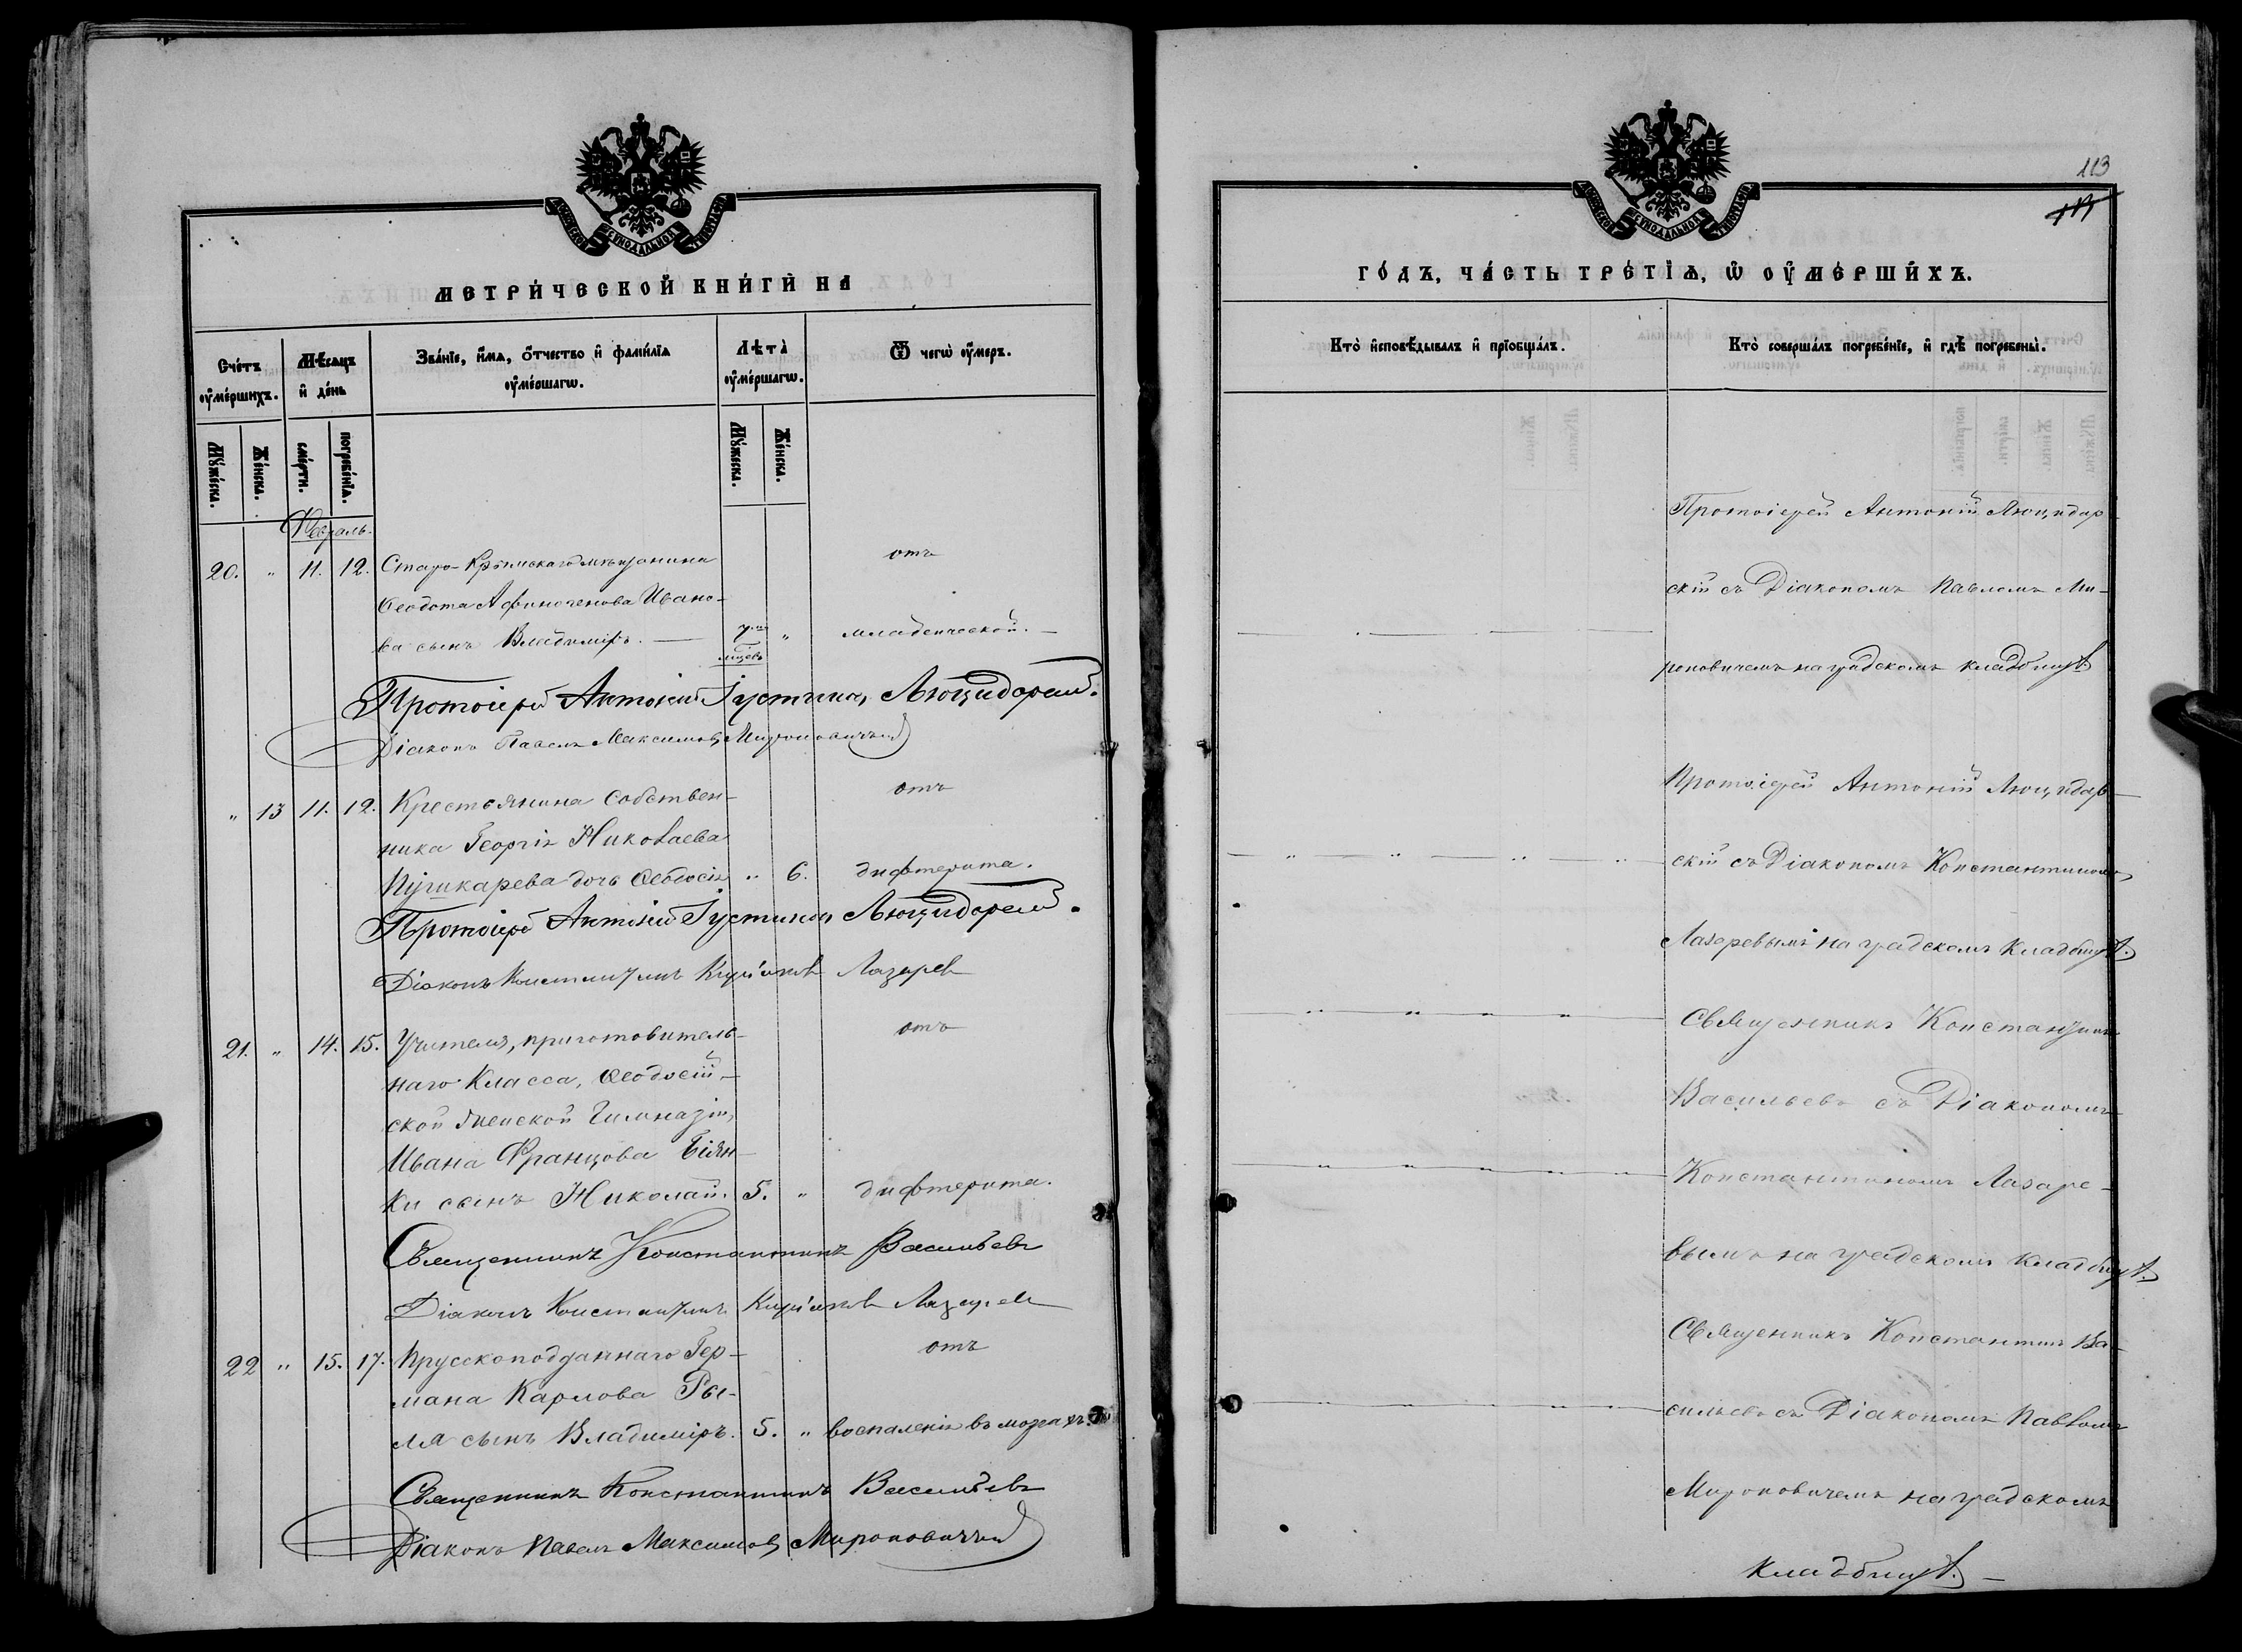 МОСКОВСКОЙ СѴНОДАЛЬНОЙ ТИПОГРАФІИ
МЕТРИ́ЧЕСКОЙ КНИ́ГИ НА̀
Сче́тъ оу҆ме́ршихъ.
Мѣ́сяцъ и҆ де́нь
Зва́нїе, и҆́мѧ, ѻ҆́тчество и҆ фамѝлїѧ оу҆ме́ршагѡ.
Лѣ́та оу҆ме́ршагѡ.
Ѿ чегѡ̀ оу҆́меръ.
Мꙋ́жеска.
Же́нска.
сме́рти.
погребе́нїѧ.
Мꙋ́жеска.
Же́нска.
Февраль.
20. " 11. 12. Старо-Крымскаго мѣщанина отъ
Ѳеодота Афиногенова Ивано-
ва сынъ Владиміръ. — 7 мцевъ " младенческой. —
Протоіерей Антоній Іустиновъ Люцидарскій.
Діаконъ Павелъ Максимовъ Мироновичъ
" 13 11. 12. Крестьянина Собствен- отъ
ника Георгія Николаева
Пушкарева дочь Ѳеодосія " 6. дифтерита.
Протоіерей Антоній Іустиновъ Люцидарскій.
Діаконъ Константинъ Киріаковъ Лазарев
21. " 14. 15. Учителя, приготовитель- отъ
наго Класса, Ѳеодосій-
ской Женской Гимназіи,
Ивана Францова Біян-
ки сынъ Николай. 5. " дифтерита.
Священникъ Константинъ Васильевъ
Діаконъ Константинъ Киріаковъ Лазарев
22 " 15. 17. Прусскоподданнаго Гер- отъ
мана Карлова Ры-
ля сынъ Владиміръ. 5. " воспаленія въ мозгахъ.
Священникъ Константинъ Васильевъ
Діаконъ Павелъ Максимовъ Мироновичъ
113
МОСКОВСКОЙ СѴНОДАЛЬНОЙ ТИПОГРАФІИ
ГО́ДЪ, ЧА́СТЬ ТРЕ́ТЇѦ, Ѡ҆ ОУ҆МЕ́РШИХЪ.
Кто̀ и҆сповѣ́дывалъ и҆ прїѡбща́лъ.
Кто̀ соверша́лъ погребе́нїе, и҆ гдѣ̀ погребены̀.
Протоіерей Антоній Люцидар
скій съ Діакономъ Павломъ Ми-
роновичемъ на градскомъ кладбищѣ
Протоіерей Антоній Люцидар-
скій съ Діакономъ Константиномъ
Лазаревымъ на градскомъ Кладбищѣ.
Священникъ Константинъ
Васильевъ съ Діакономъ
Константиномъ Лазаре-
вымъ на градскомъ Кладбищѣ.
Священникъ Константинъ Ва-
сильевъ съ Діакономъ Павломъ
Мироновичемъ на градскомъ
Кладбищѣ. —